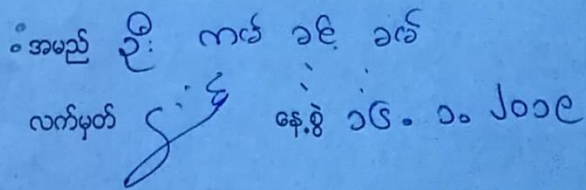 အမည် ဦး ကင်ခင့်ခင်
လက်မှတ် နေ့စွဲ ၁၆.၁.၂၀၁၉